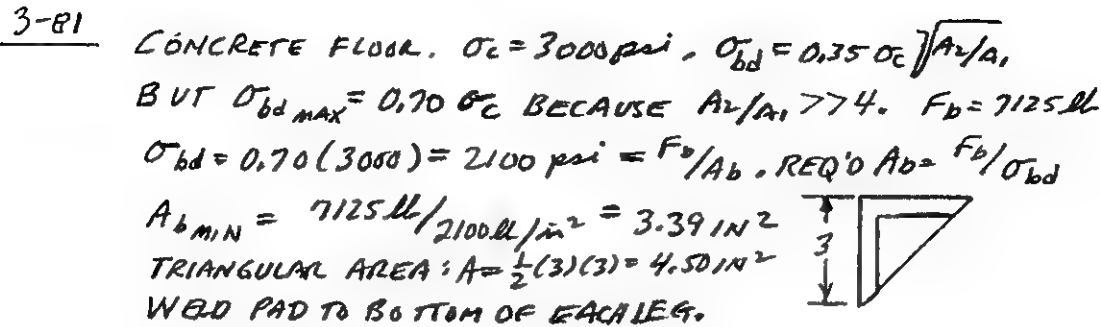 3-81
CONCRETE FLOOR. σc = 3000 psi. σbd = 0.35 σc √A2/A1
BUT σbd MAX = 0.70 σc BECAUSE A2/A1 >> 4. Fb = 7125 lb
σbd = 0.70 (3000) = 2100 psi = Fb/Ab. REQ'D Ab = Fb/σbd
Ab MIN = 7125 lb/2100 lb/in² = 3.39 IN²
3
TRIANGULAR AREA: A = ½(3)(3) = 4.50 IN²
WELD PAD TO BOTTOM OF EACH LEG.